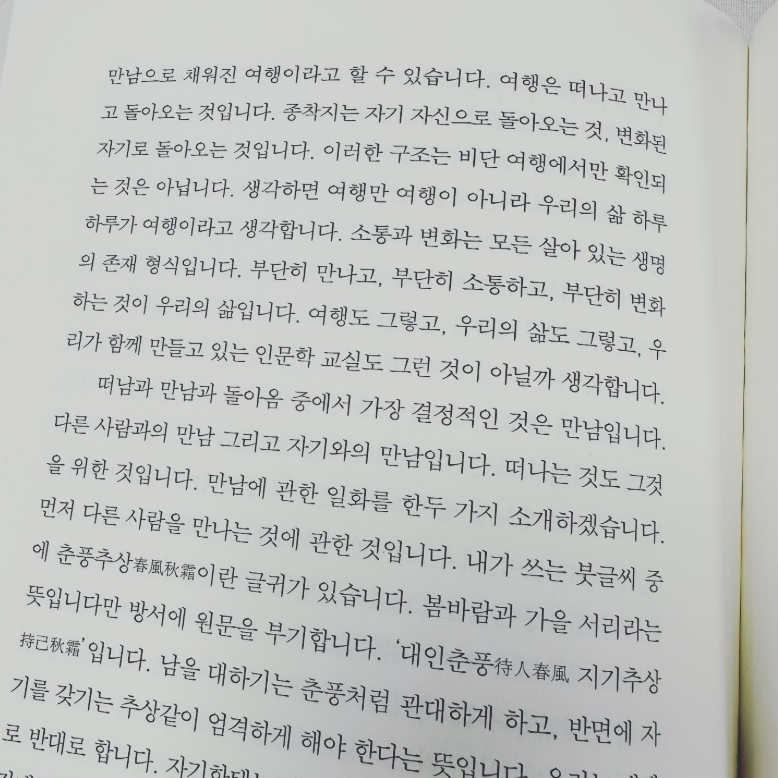 만남으로 채워진 여행이라고 할 수 있습니다. 여행은 떠나고 만나
고 돌아오는 것입니다. 종착지는 자기 자신으로 돌아오는 것, 변화된
자기로 돌아오는 것입니다. 이러한 구조는 비단 여행에서만 확인되
는 것은 아닙니다. 생각하면 여행만 여행이 아니라 우리의 삶 하루
하루가 여행이라고 생각합니다. 소통과 변화는 모든 살아 있는 생명
의 존재 형식입니다. 부단히 만나고, 부단히 소통하고, 부단히 변화
하는 것이 우리의 삶입니다. 여행도 그렇고, 우리의 삶도 그렇고, 우
리가 함께 만들고 있는 인문학 교실도 그런 것이 아닐까 생각합니다.
떠남과 만남과 돌아옴 중에서 가장 결정적인 것은 만남입니다.
다른 사람과의 만남 그리고 자기와의 만남입니다. 떠나는 것도 그것
을 위한 것입니다. 만남에 관한 일화를 한두 가지 소개하겠습니다.
먼저 다른 사람을 만나는 것에 관한 것입니다. 내가 쓰는 붓글씨 중
에 춘풍추상春風秋霜이란 글귀가 있습니다. 봄바람과 가을 서리라는
뜻입니다만 방서에 원문을 부기합니다. ‘대인춘풍待人春風 지기추상
持己秋霜’입니다. 남을 대하기는 춘풍처럼 관대하게 하고, 반면에 자
기를 갖기는 추상같이 엄격하게 해야 한다는 뜻입니다.
로 반대로 합니다. 자기한테는